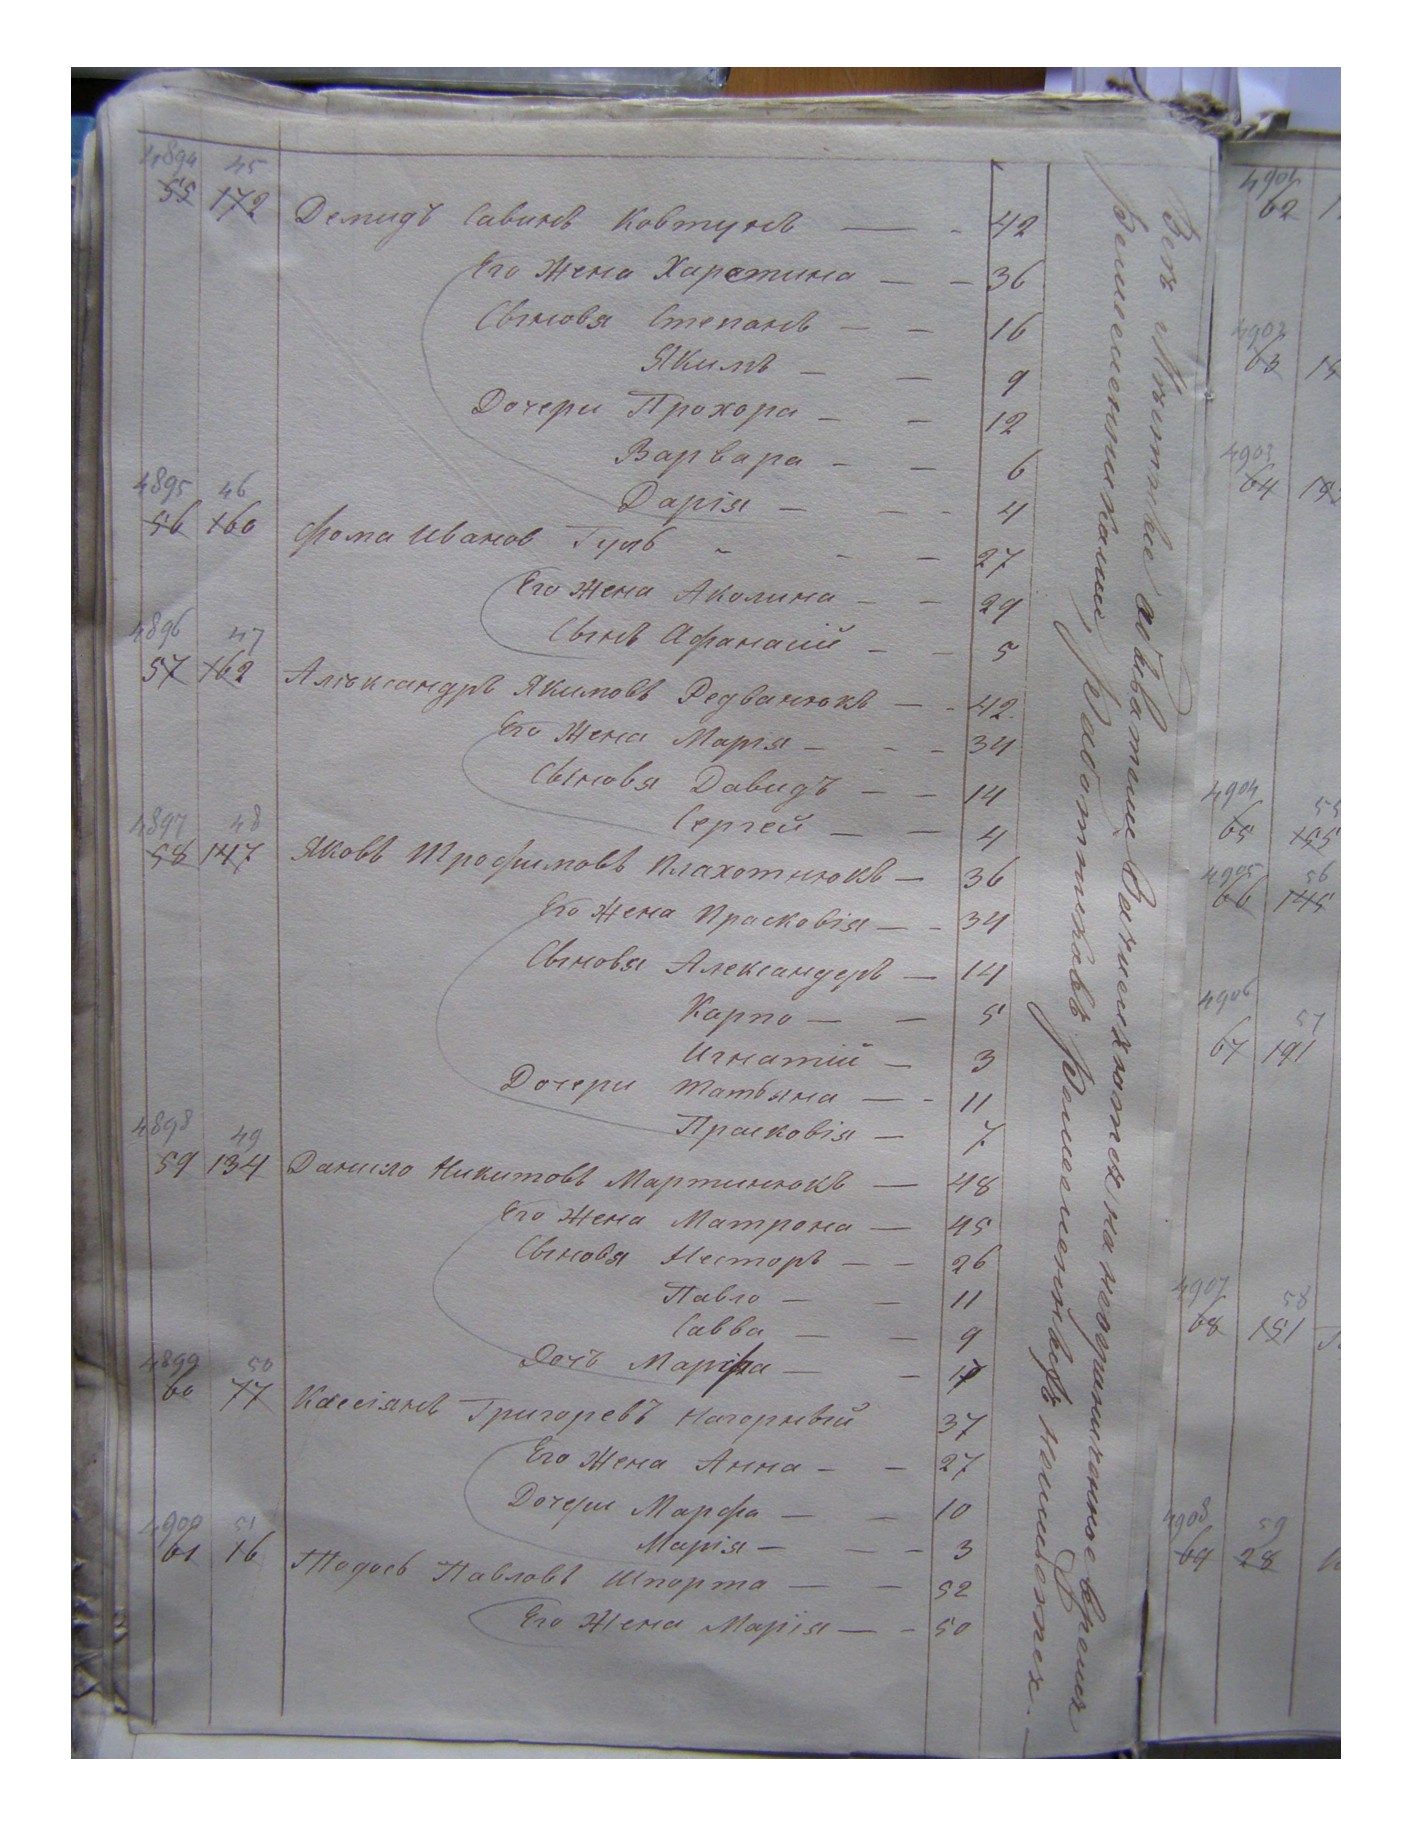 4894 45
55 172 Демидъ Савинъ Ковтунъ — - 42
Его Жена Харетина — — 36
Сыновья Степанъ — — 16
Якимъ — — 9
Дочери Прохора — — 12
Варвара — — 6
Дарія — — - 4
4895 46
56 160 Фома Иванов Гуль - - — 27
Его Жена Аколина — — 29
Сынъ Афанасій — — 5
4896 47
57 162 Алѣксандръ Якимовъ Редванюкъ — - 42.
Его Жена Марія — - — 34
Сыновья Давидъ — — 14
Сергей — — 4
4897 48
58 147 Яковъ Трофимовъ Плахотнюкъ — 36
Его Жена Прасковія — - 34
Сыновья Александеръ — 14
Карпо — — 5
Игнатій — 3
Дочери Татьяна — - 11
Прасковія — 7
4898 49
59 134 Данило Никитовъ Мартинюкъ — 48
Его Жена Матрона — 45
Сыновья Несторъ — — 26
Павло — — 11
Савва — — 9
Дочь Марфа — - 17
4899 50
60 77 Кассіянъ Григоревъ Нагорный 37
Его Жена Анна — — 27
Дочери Марфа — — 10
Марія — — - 3
4900 51
61 16 Тодось Павловъ Шпорта — — 52
Его Жена Марія — - 50
на неограниченное время
4901
62
4902
63
4903
64
4904 55
65 155
4905 56
66 145
4906 57
67 191
4907 58
68 151
4908 59
69 28